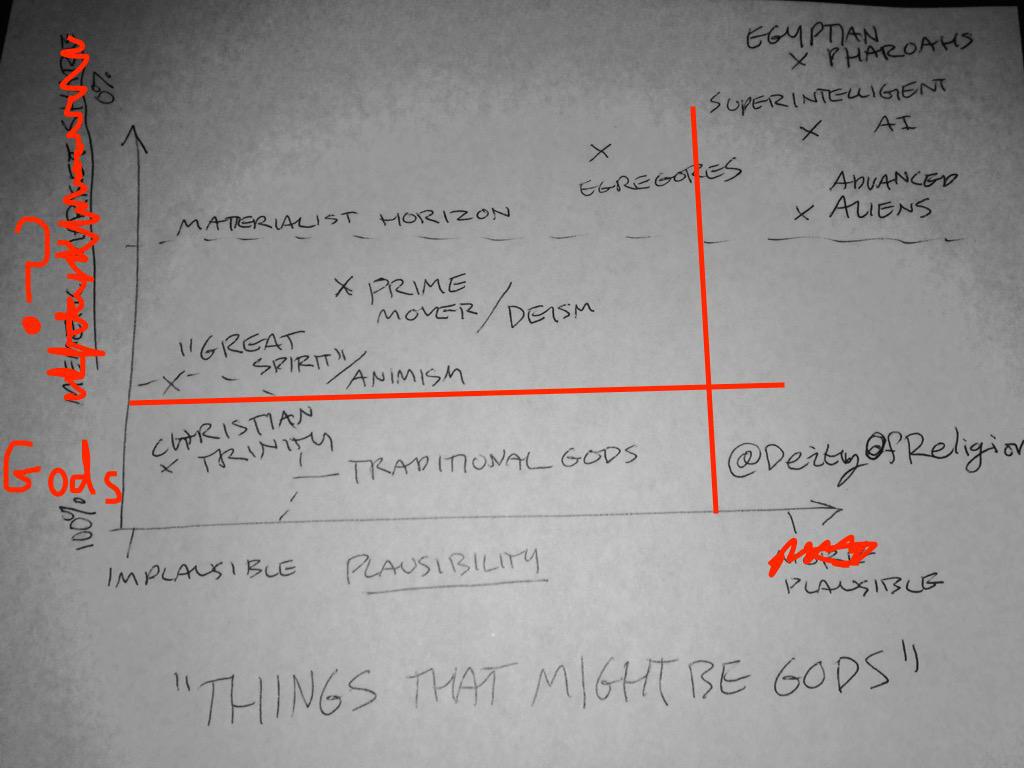 EGYPTIAN
PHAROAHS
SUPERINTELLIGENT
AI
EGREGORES
ADVANCED
ALIENS
MATERIALIST HORIZON
PRIME
MOVER/DEISM
"GREAT
SPIRIT"/ANIMISM
CHRISTIAN
TRINITY
TRADITIONAL GODS
@DeityOfReligion
0%
?
Gods
100%
IMPLAUSIBLE
PLAUSIBILITY
PLAUSIBLE
"THINGS THAT MIGHT BE GODS"